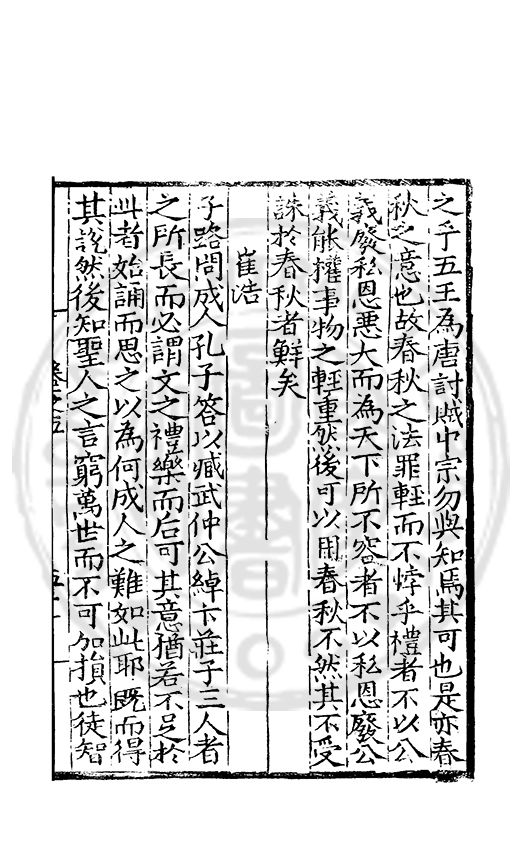 之乎五王為唐討賊中宗勿與知焉其可也是亦春
秋之意也故春秋之法罪輕而不悖乎禮者不以公
義廢私恩惡大而為天下所不容者不以私恩廢公
義能權事物之輕重然後可以用春秋不然其不受
誅於春秋者鮮矣
崔浩
子路問成人孔子答以臧武仲公綽卞莊子三人者
之所長而必謂文之禮樂而后可其意猶若不足於
此者始誦而思之以為何成人之難如此耶既而得
其說然後知聖人之言窮萬世而不可加損也徒智